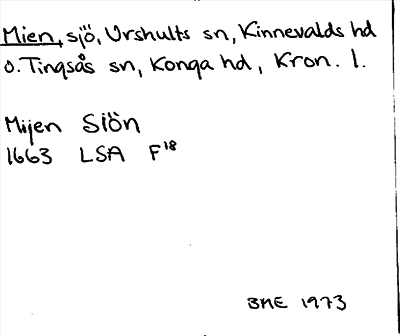 Mien, sjö, Urshults sn, Kinnevalds hd
o. Tingsås sn, Konga hd, Kron. l.
Mijen Siön
1663 LSA F18
BME 1973